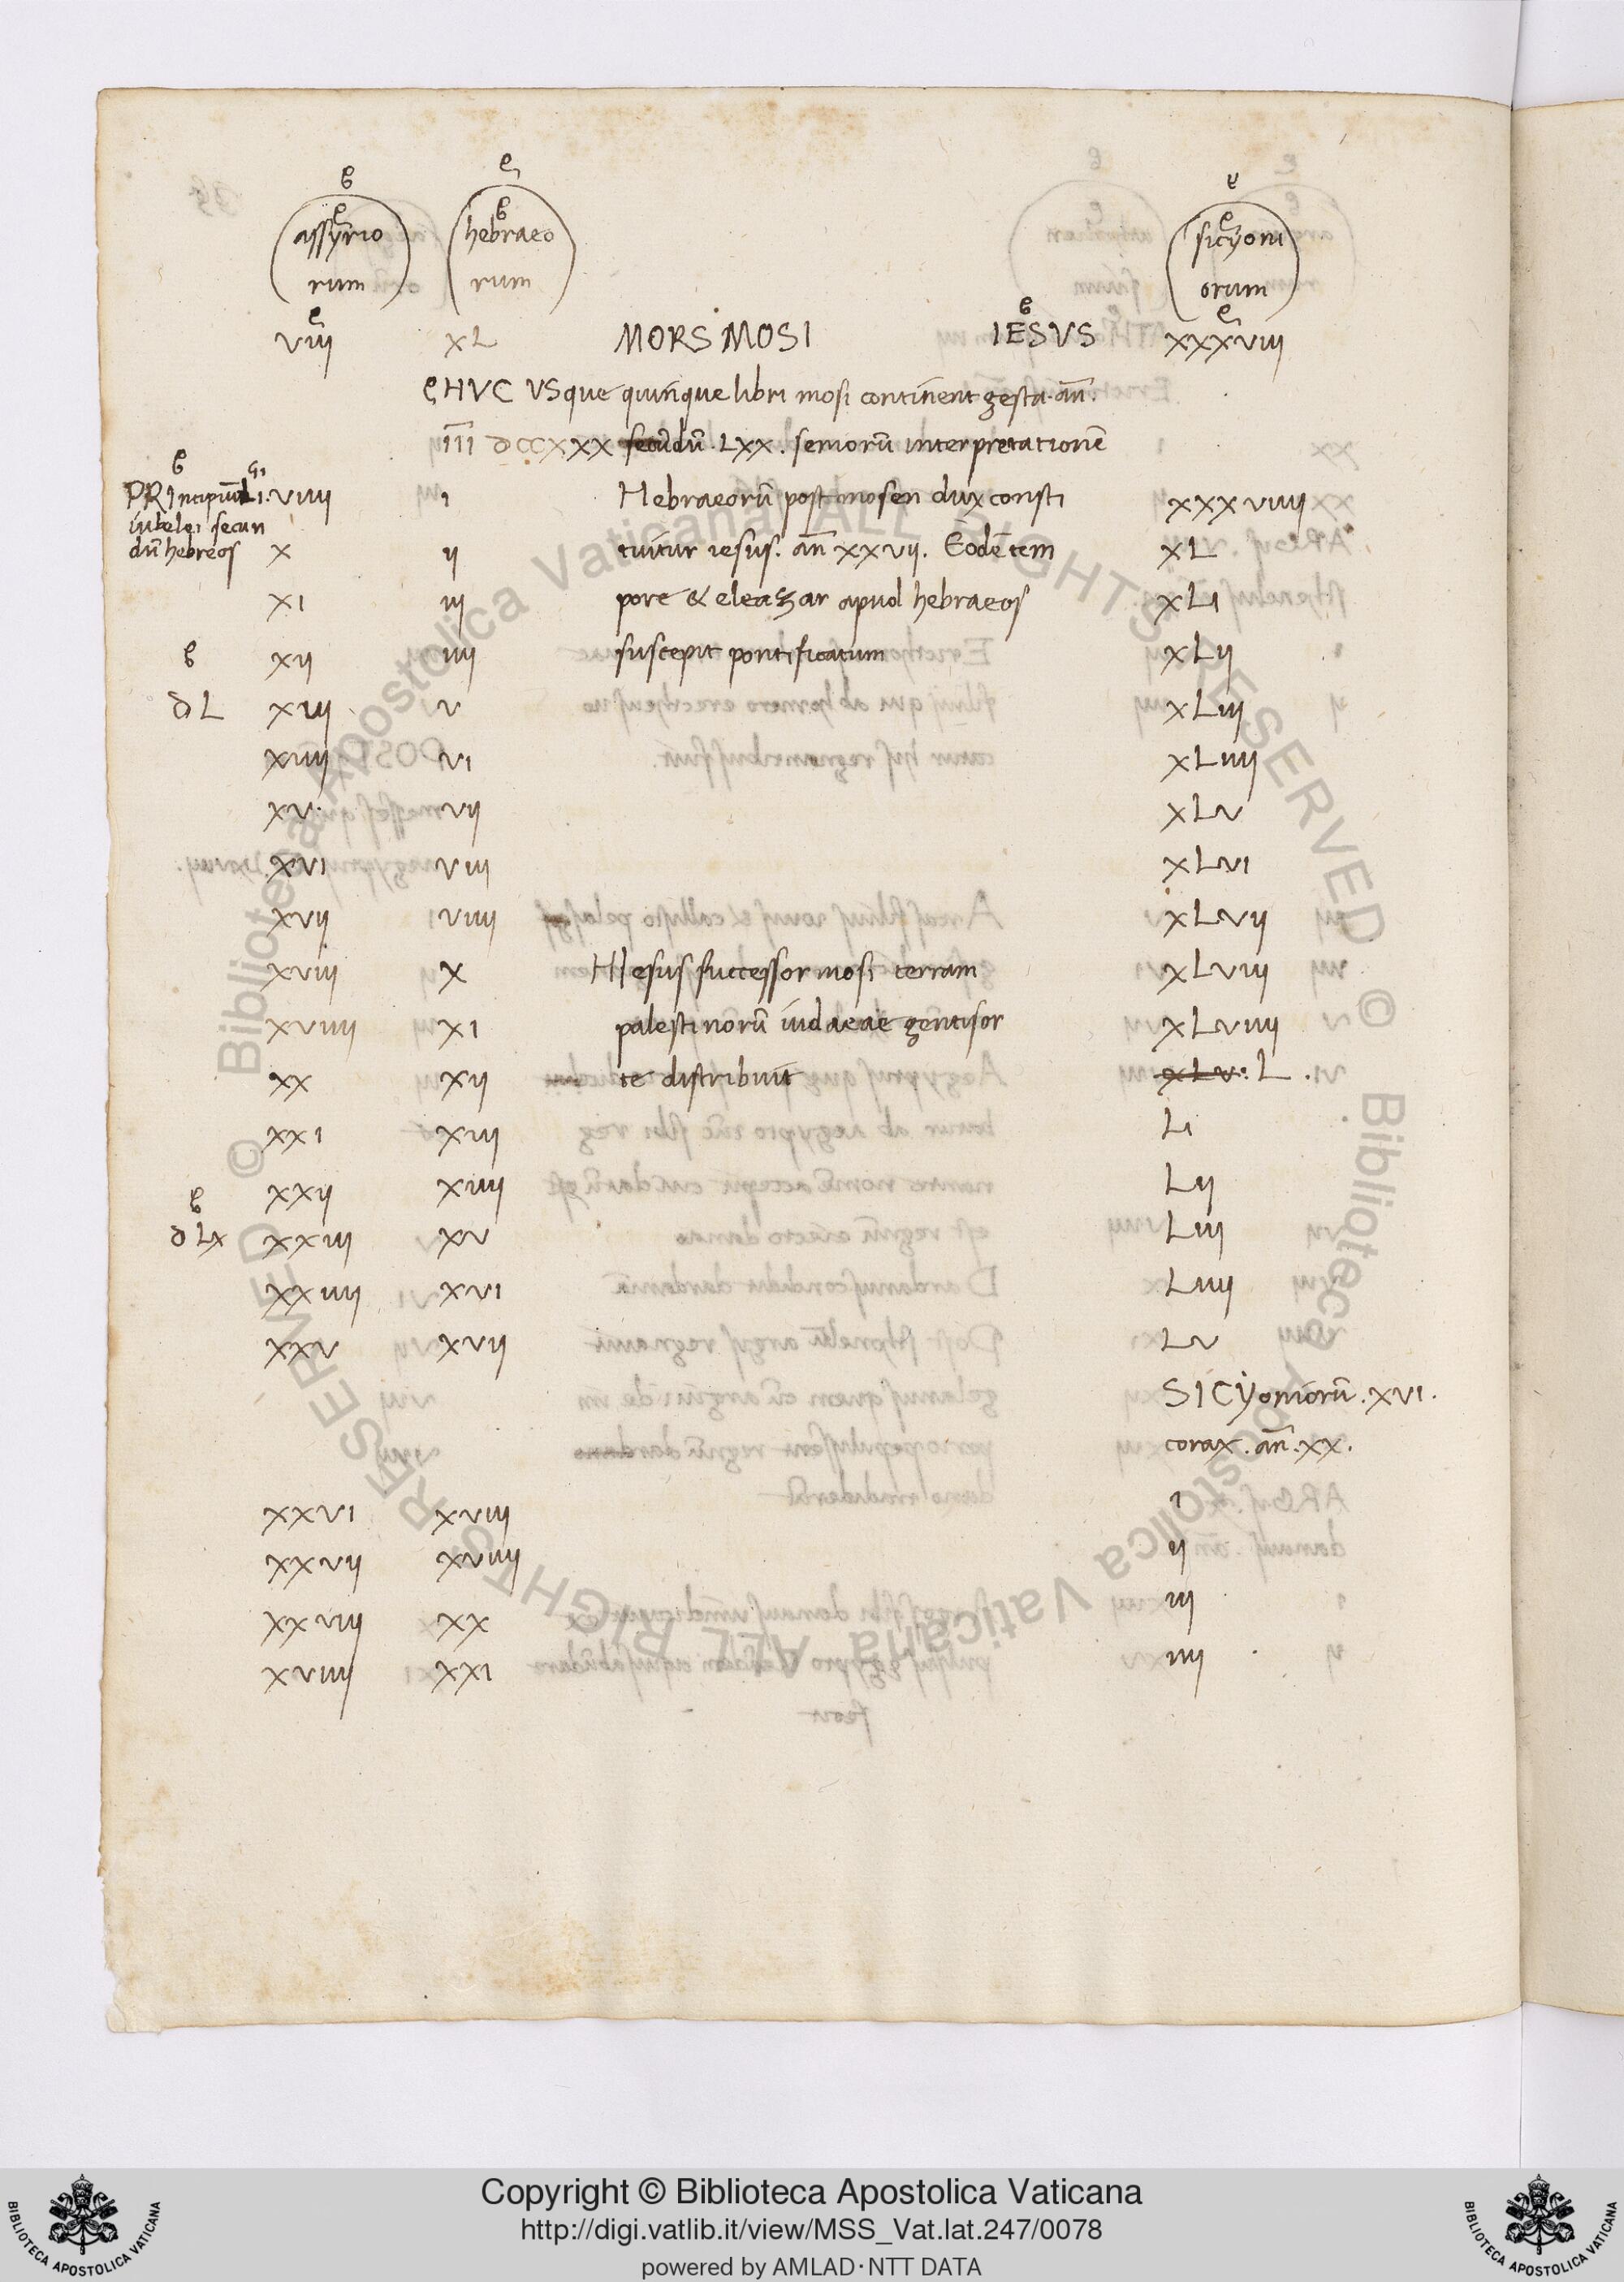 assyrio hebraeo sicyoni
rum rum orum
viii xL MORS MOSI IESVS xxxviii
HVC VSque quinque libri mosi continent gesta. añ.
III dccxxx secūdū. Lxx. seniorū interpretationē
PRIncipiuɱ LI. viiii i Hebraeorū post mosen dux consti xxxviiii
iubelei secun
dū hebreos x ii tuitur iesus. añ xxvii. Eodē tem xL
xi iii pore & eleazar apud hebraeos xLi
xii iiii suscepit pontificatum xLii
dL xiii v xLiii
xiiii vi xLiiii
xv. vii xLv
xvi viii xLvi
xvii viiii xLvii
xviii x HIesus successor mosi terram xLviii
xviiii xi palestinorū iudaeae gentis sor xLviiii
xx xii te distribuit xLv. L.
xxi xiii Li
xxii xiiii Lii
dLx xxiii xv Liii
xxiiii xvi Liiii
xxv xvii Lv
SICyoniorū. xvi.
corax. añ. xx.
xxvi xviii i
xxvii xviiii ii
xxviii xx iii
xviiii xxi iiii
Copyright © Biblioteca Apostolica Vaticana
http://digi.vatlib.it/view/MSS_Vat.lat.247/0078
powered by AMLAD·NTT DATA
BIBLIOTECA APOSTOLICA VATICANA
BIBLIOTECA APOSTOLICA VATICANA
© Biblioteca Apostolica Vaticana ALL RIGHTS RESERVED
© Biblioteca Apostolica Vaticana ALL RIGHTS RESERVED